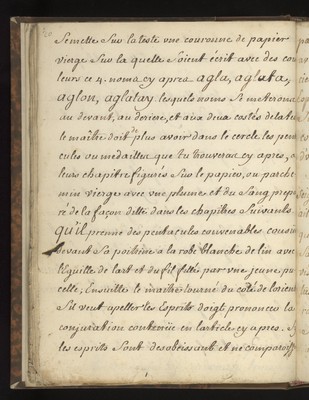 Se mette Sur la teste une couronne de papier
vierge Sur la quelle Soient écrit avec des cou
leurs ce 4. noms cy aprez agla, aglata,
aglon, aglatay lesquels noms Se metterons
au devant, au deriere, et aux deux costés de la te
le maitre doit de plus avoir dans le cercle les pen
cules ou medailles que tu trouveras cy après, a
leurs chapitre figurés Sur le papier, ou parche
min vierge avec une plume et du Sang, prepa
ré de la façon ditte dans les chapitres Suivants
qu'il prenne des pentacules convenables cousu
devant Sa poitrine a la robe blanche de lin avec
l'Eguille de l'art et du fil filé par une jeune pu
celle; Ensuitte le maitre tourné du coté de l'orient
S'il veut apeller les Esprits doigt prononcer la
conjuration contenüe en l'article cy apres. Si
les esprits Sont desobeissant et ne comparoiss